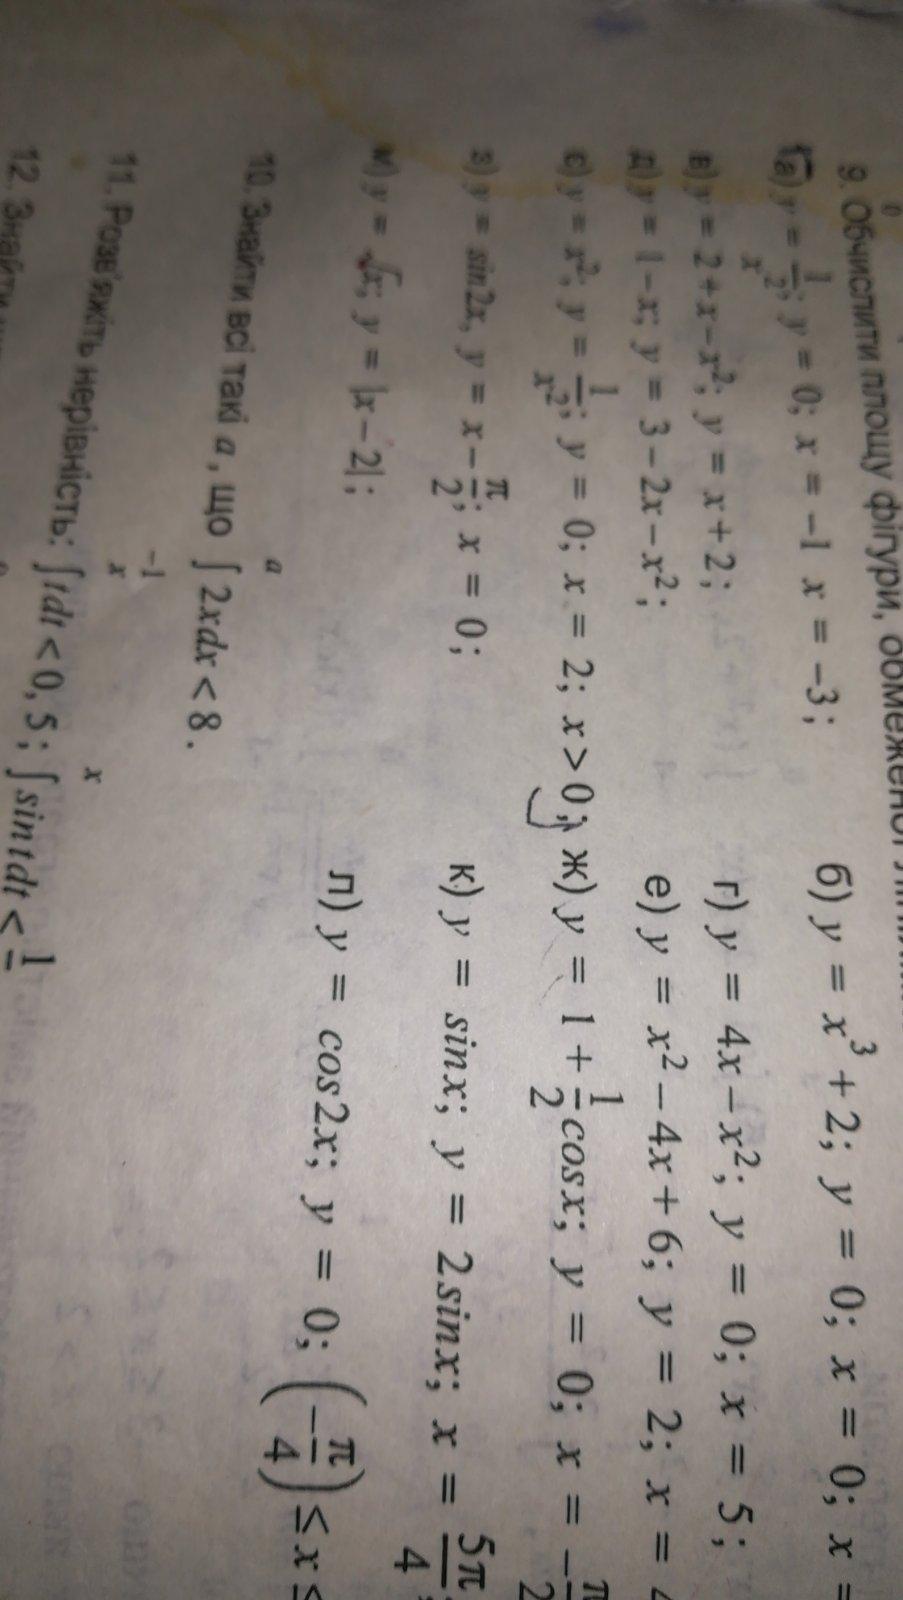 9. Обчислити площу фігури, обмеженої
а) y = 1/x²; y = 0; x = −1 x = −3; б) y = x³ + 2; y = 0; x = 0; x =
в) y = 2 + x − x²; y = x + 2; г) y = 4x − x²; y = 0; x = 5;
д) y = 1 − x; y = 3 − 2x − x²; е) y = x² − 4x + 6; y = 2; x =
є) y = x²; y = 1/x²; y = 0; x = 2; x > 0; ж) y = 1 + 1/2 cosx; y = 0; x = −π/2
з) y = sin2x, y = x − π/2; x = 0; к) y = sinx; y = 2sinx; x = 5π/4;
y = √x; y = |x − 2|; л) y = cos2x; y = 0; (−π/4) ≤ x ≤
10. Знайти всі такі a, що ∫₋₁ᵃ 2xdx < 8.
11. Розв'яжіть нерівність: ∫ˣ tdt < 0,5; ∫ˣ sintdt < 1/
12. Знайти